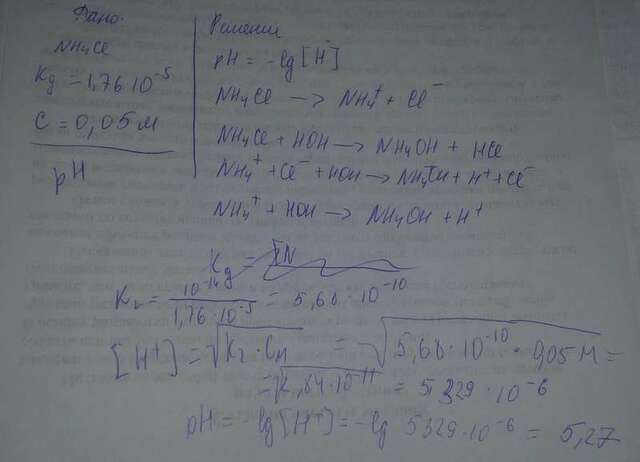 Дано:
NH4Cl
Kд = 1,76·10⁻⁵
C = 0,05 м
pH
Решение
pH = -lg [H]
NH4Cl —> NH4⁺ + Cl⁻
NH4Cl + HOH —> NH4OH + HCl
NH4⁺ + Cl⁻ + HOH —> NH4OH + H⁺ + Cl⁻
NH4⁺ + HOH —> NH4OH + H⁺
Kд =
Kг = 10⁻¹⁴ / 1,76·10⁻⁵ = 5,68·10⁻¹⁰
[H⁺] = √Kг·Cм = √5,68·10⁻¹⁰ · 0,05 м =
= √2,84·10⁻¹¹ = 5,329·10⁻⁶
pH = -lg [H⁺] = -lg 5329·10⁻⁶ = 5,27